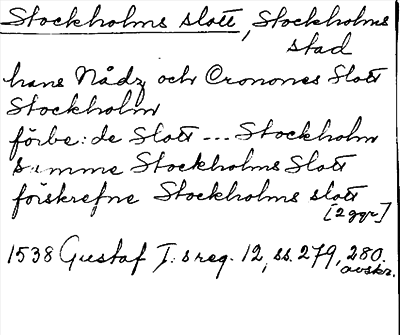 Stockholms slott, Stockholms
stad
hans Nådz och Cronones Slott
Stockholm
förbe:de Slott --- Stockholm
samme Stockholms Slott
förskrefne Stockholms slott
[2 ggr]
1538 Gustaf I:s reg. 12, ss. 279, 280.
avskr.